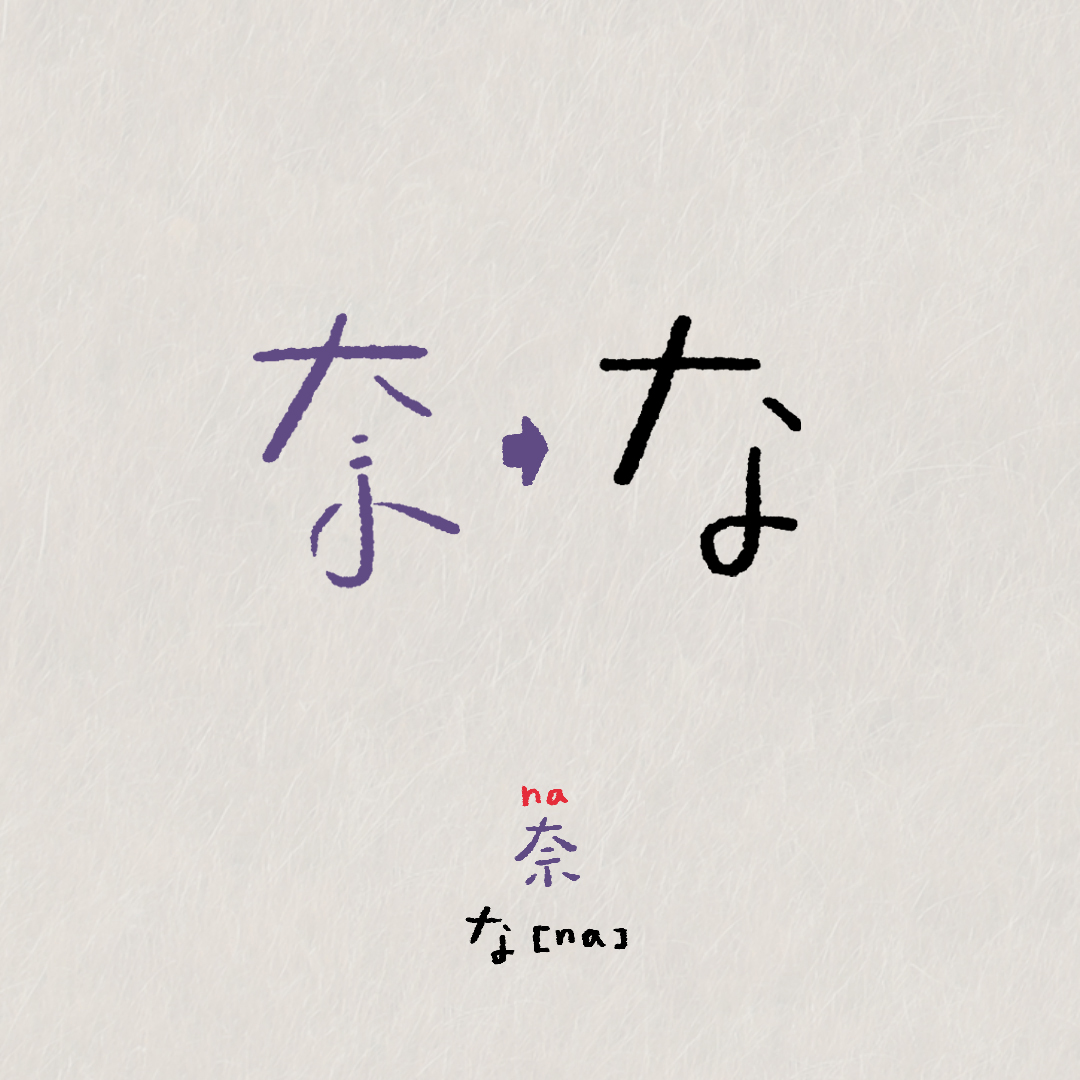 奈 な
na
奈
な [na]